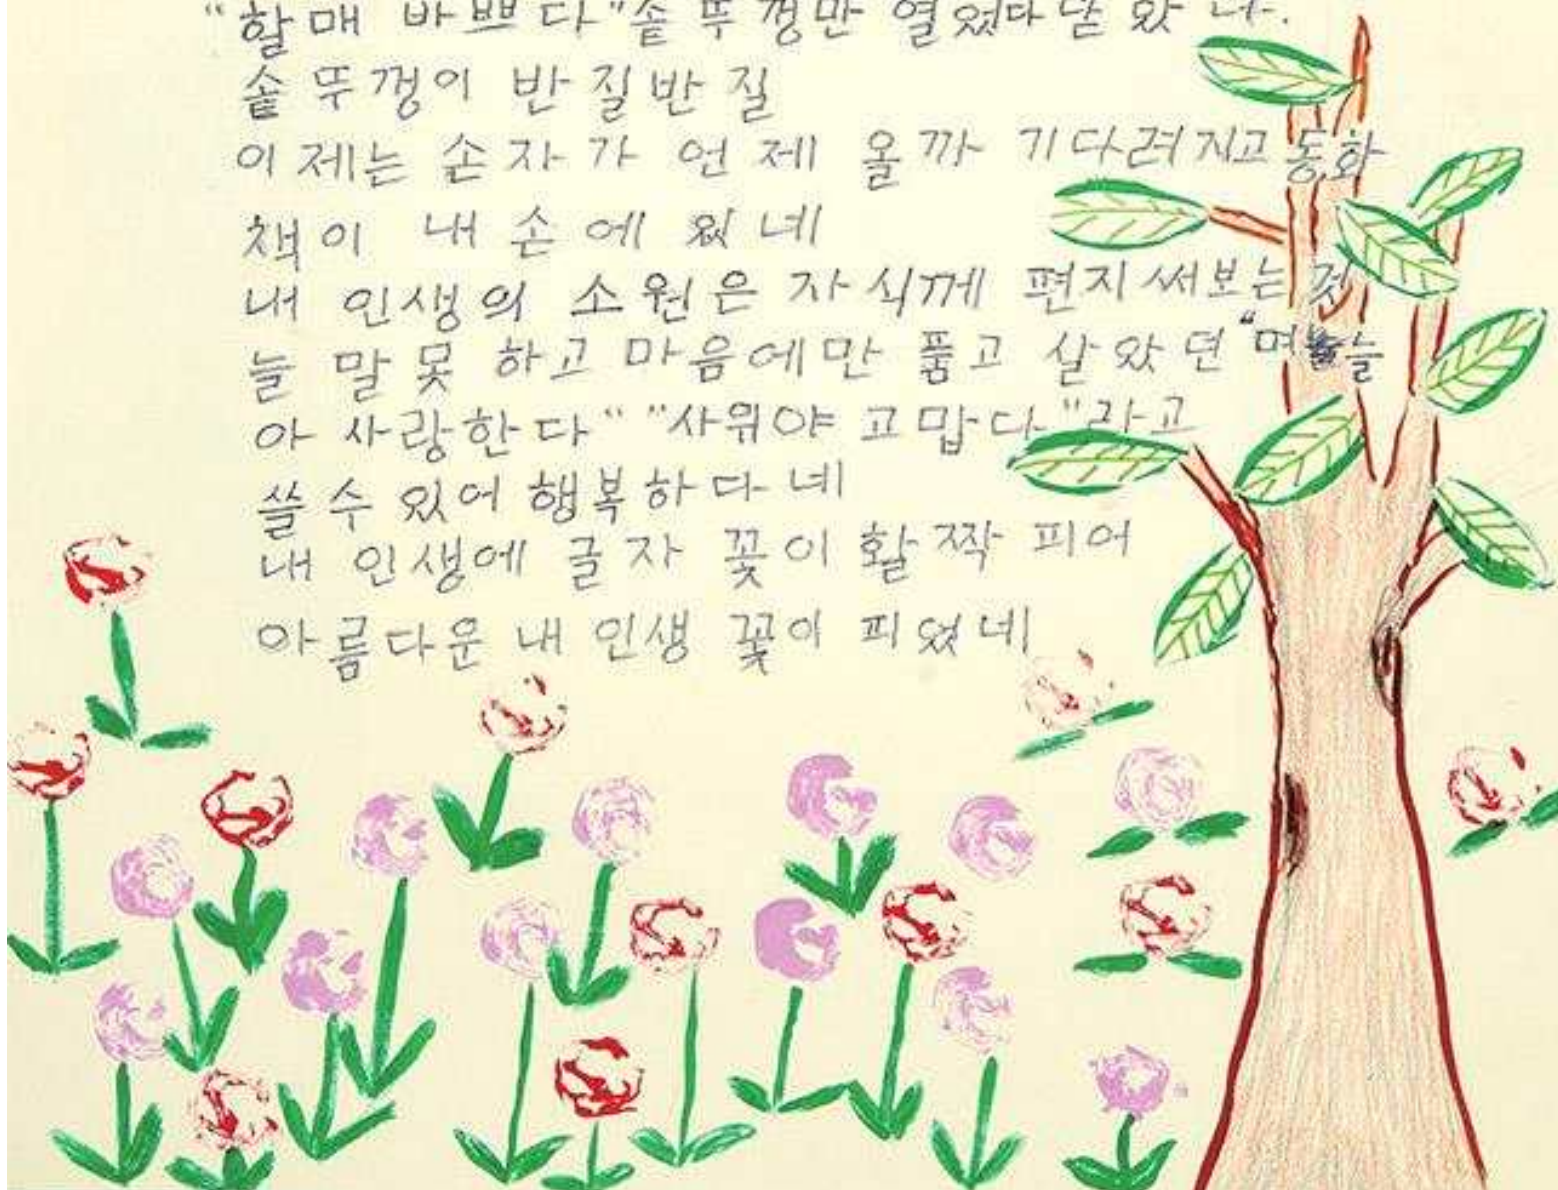 "할매 바쁘다"솥 뚜껑만 열었다 닫 았 나.
솥 뚜껑이 반질반질
이제는 손자가 언제 올까 기다려지고 동화
책이 내 손에 있네
내 인생의 소원은 자식께 편지 써보는 것
늘 말 못 하고 마음에만 품고 살았던 "며늘
아 사랑한다" "사위야 고맙다"라고
쓸 수 있어 행복하다네
내 인생에 글자 꽃이 활짝 피어
아름다운 내 인생 꽃이 피었네